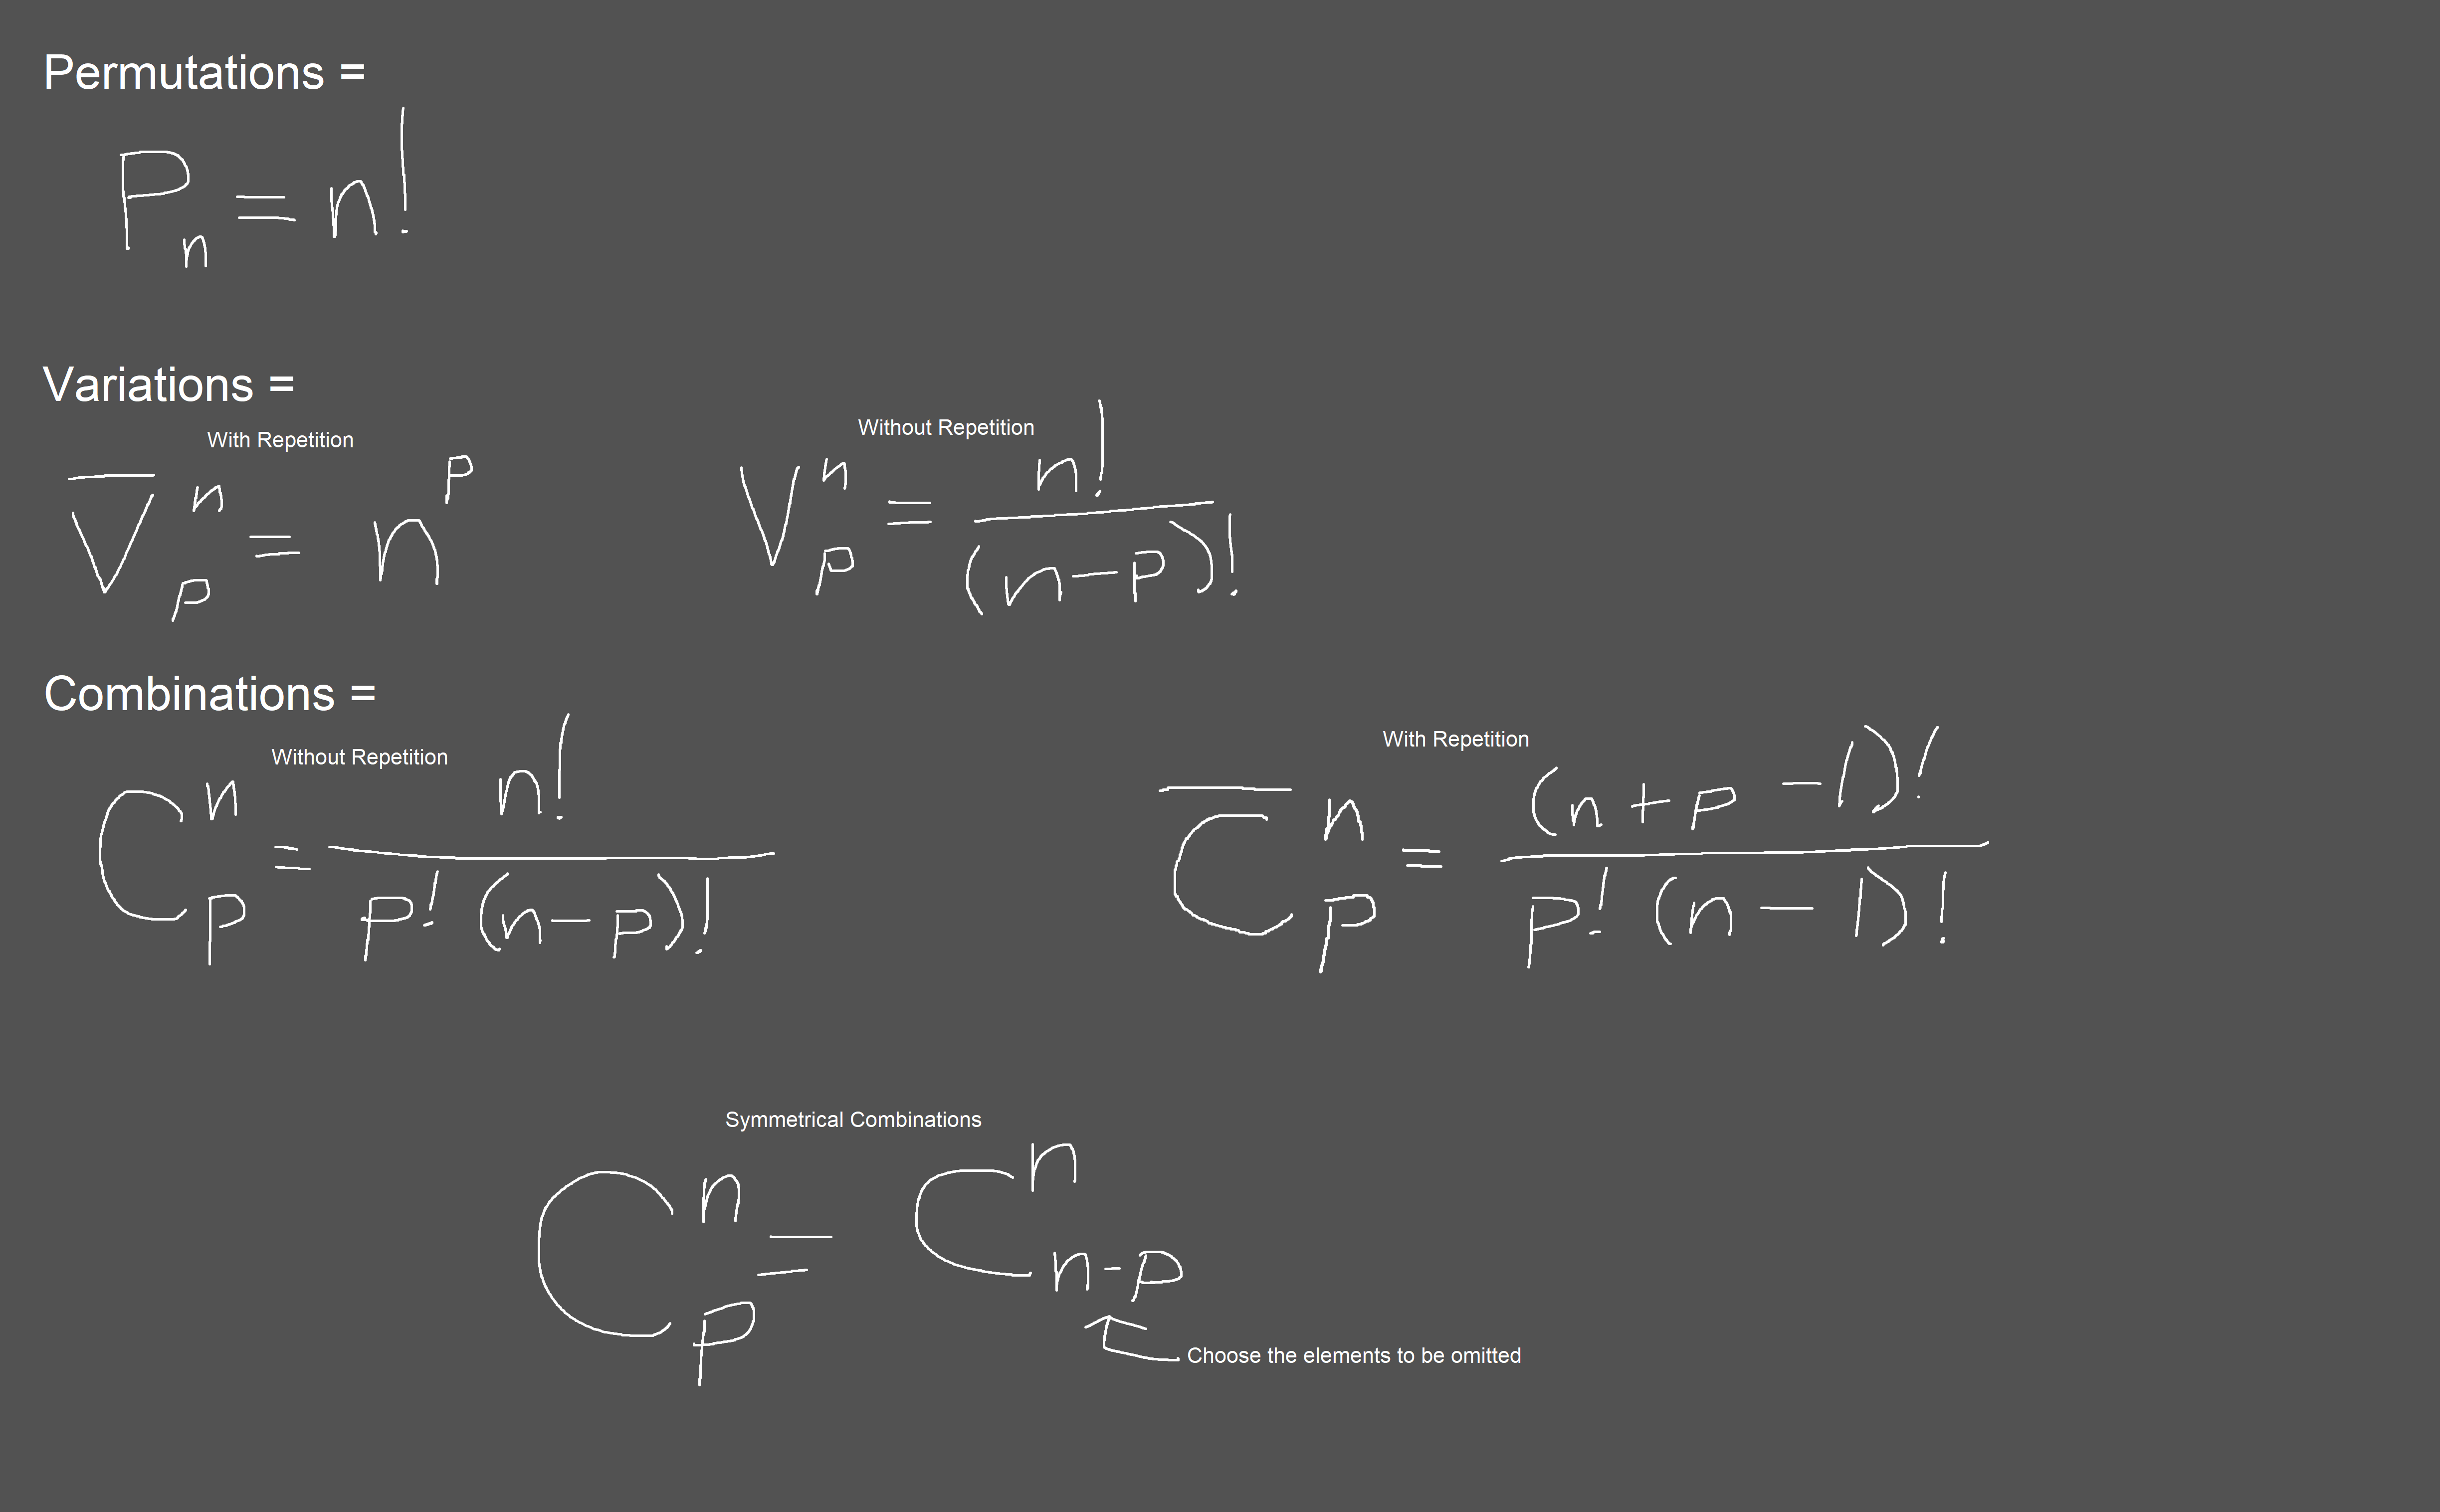 Permutations =
Pₙ = n!
Variations =
With Repetition
V̅ⁿₚ = nᵖ
Without Repetition
Vⁿₚ = n! / (n-p)!
Combinations =
Without Repetition
Cⁿₚ = n! / p! (n-p)!
With Repetition
C̅ⁿₚ = (n+p-1)! / p! (n-1)!
Symmetrical Combinations
Cⁿₚ = Cⁿₙ₋ₚ
Choose the elements to be omitted